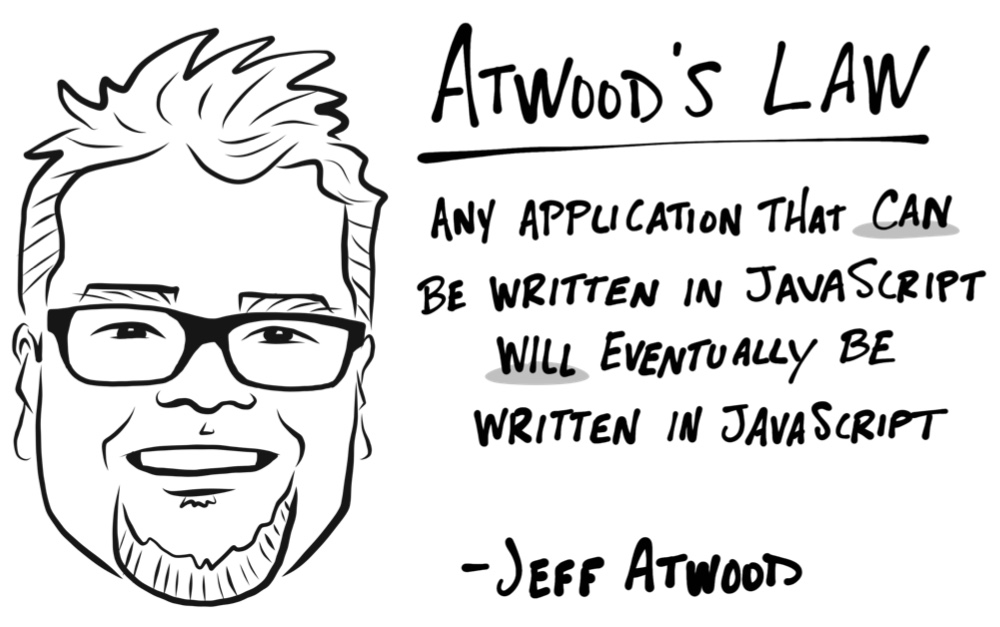 ATWOOD'S LAW
ANY APPLICATION THAT CAN
BE WRITTEN IN JAVASCRIPT
WILL EVENTUALLY BE
WRITTEN IN JAVASCRIPT
-JEFF ATWOOD